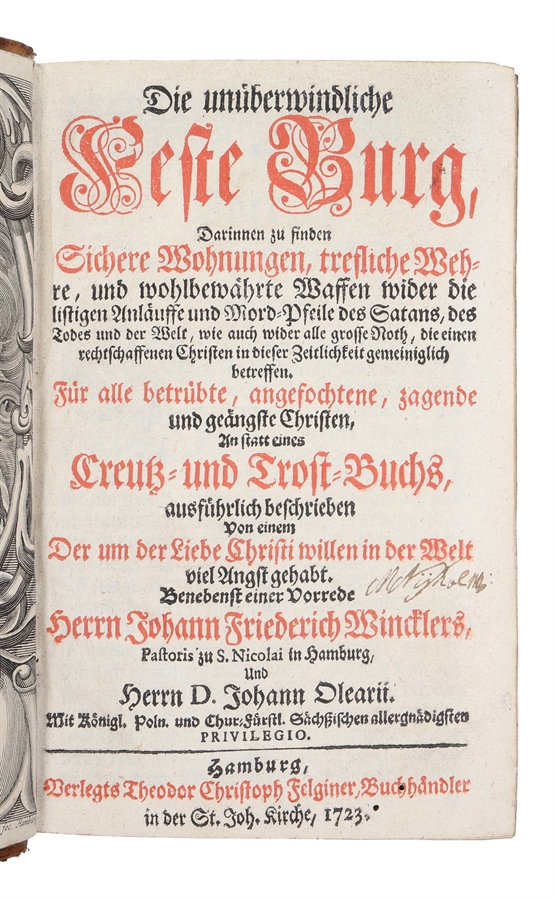 Die unüberwindliche
Veste Burg,
Darinnen zu finden
Sichere Wohnungen, trefliche Weh-
re, und wohlbewährte Waffen wider die
listigen Anläuffe und Mord-Pfeile des Satans, des
Todes und der Welt, wie auch wider alle grosse Noth, die einen
rechtschaffenen Christen in dieser Zeitlichkeit gemeiniglich
betreffen.
Für alle betrübte, angefochtene, zagende
und geängste Christen,
An statt eines
Creutz- und Trost-Buchs,
ausführlich beschrieben
Von einem
Der um der Liebe Christi willen in der Welt
viel Angst gehabt.
Benebenst einer Vorrede
Herrn Johann Friederich Wincklers,
Pastoris zu S. Nicolai in Hamburg,
Und
Herrn D. Johann Olearii.
Mit Königl. Poln. und Chur-Fürstl. Sächßischen allergnädigsten
PRIVILEGIO.
Hamburg,
Verlegts Theodor Christoph Felginer, Buchhändler
in der St. Joh. Kirche, 1723.